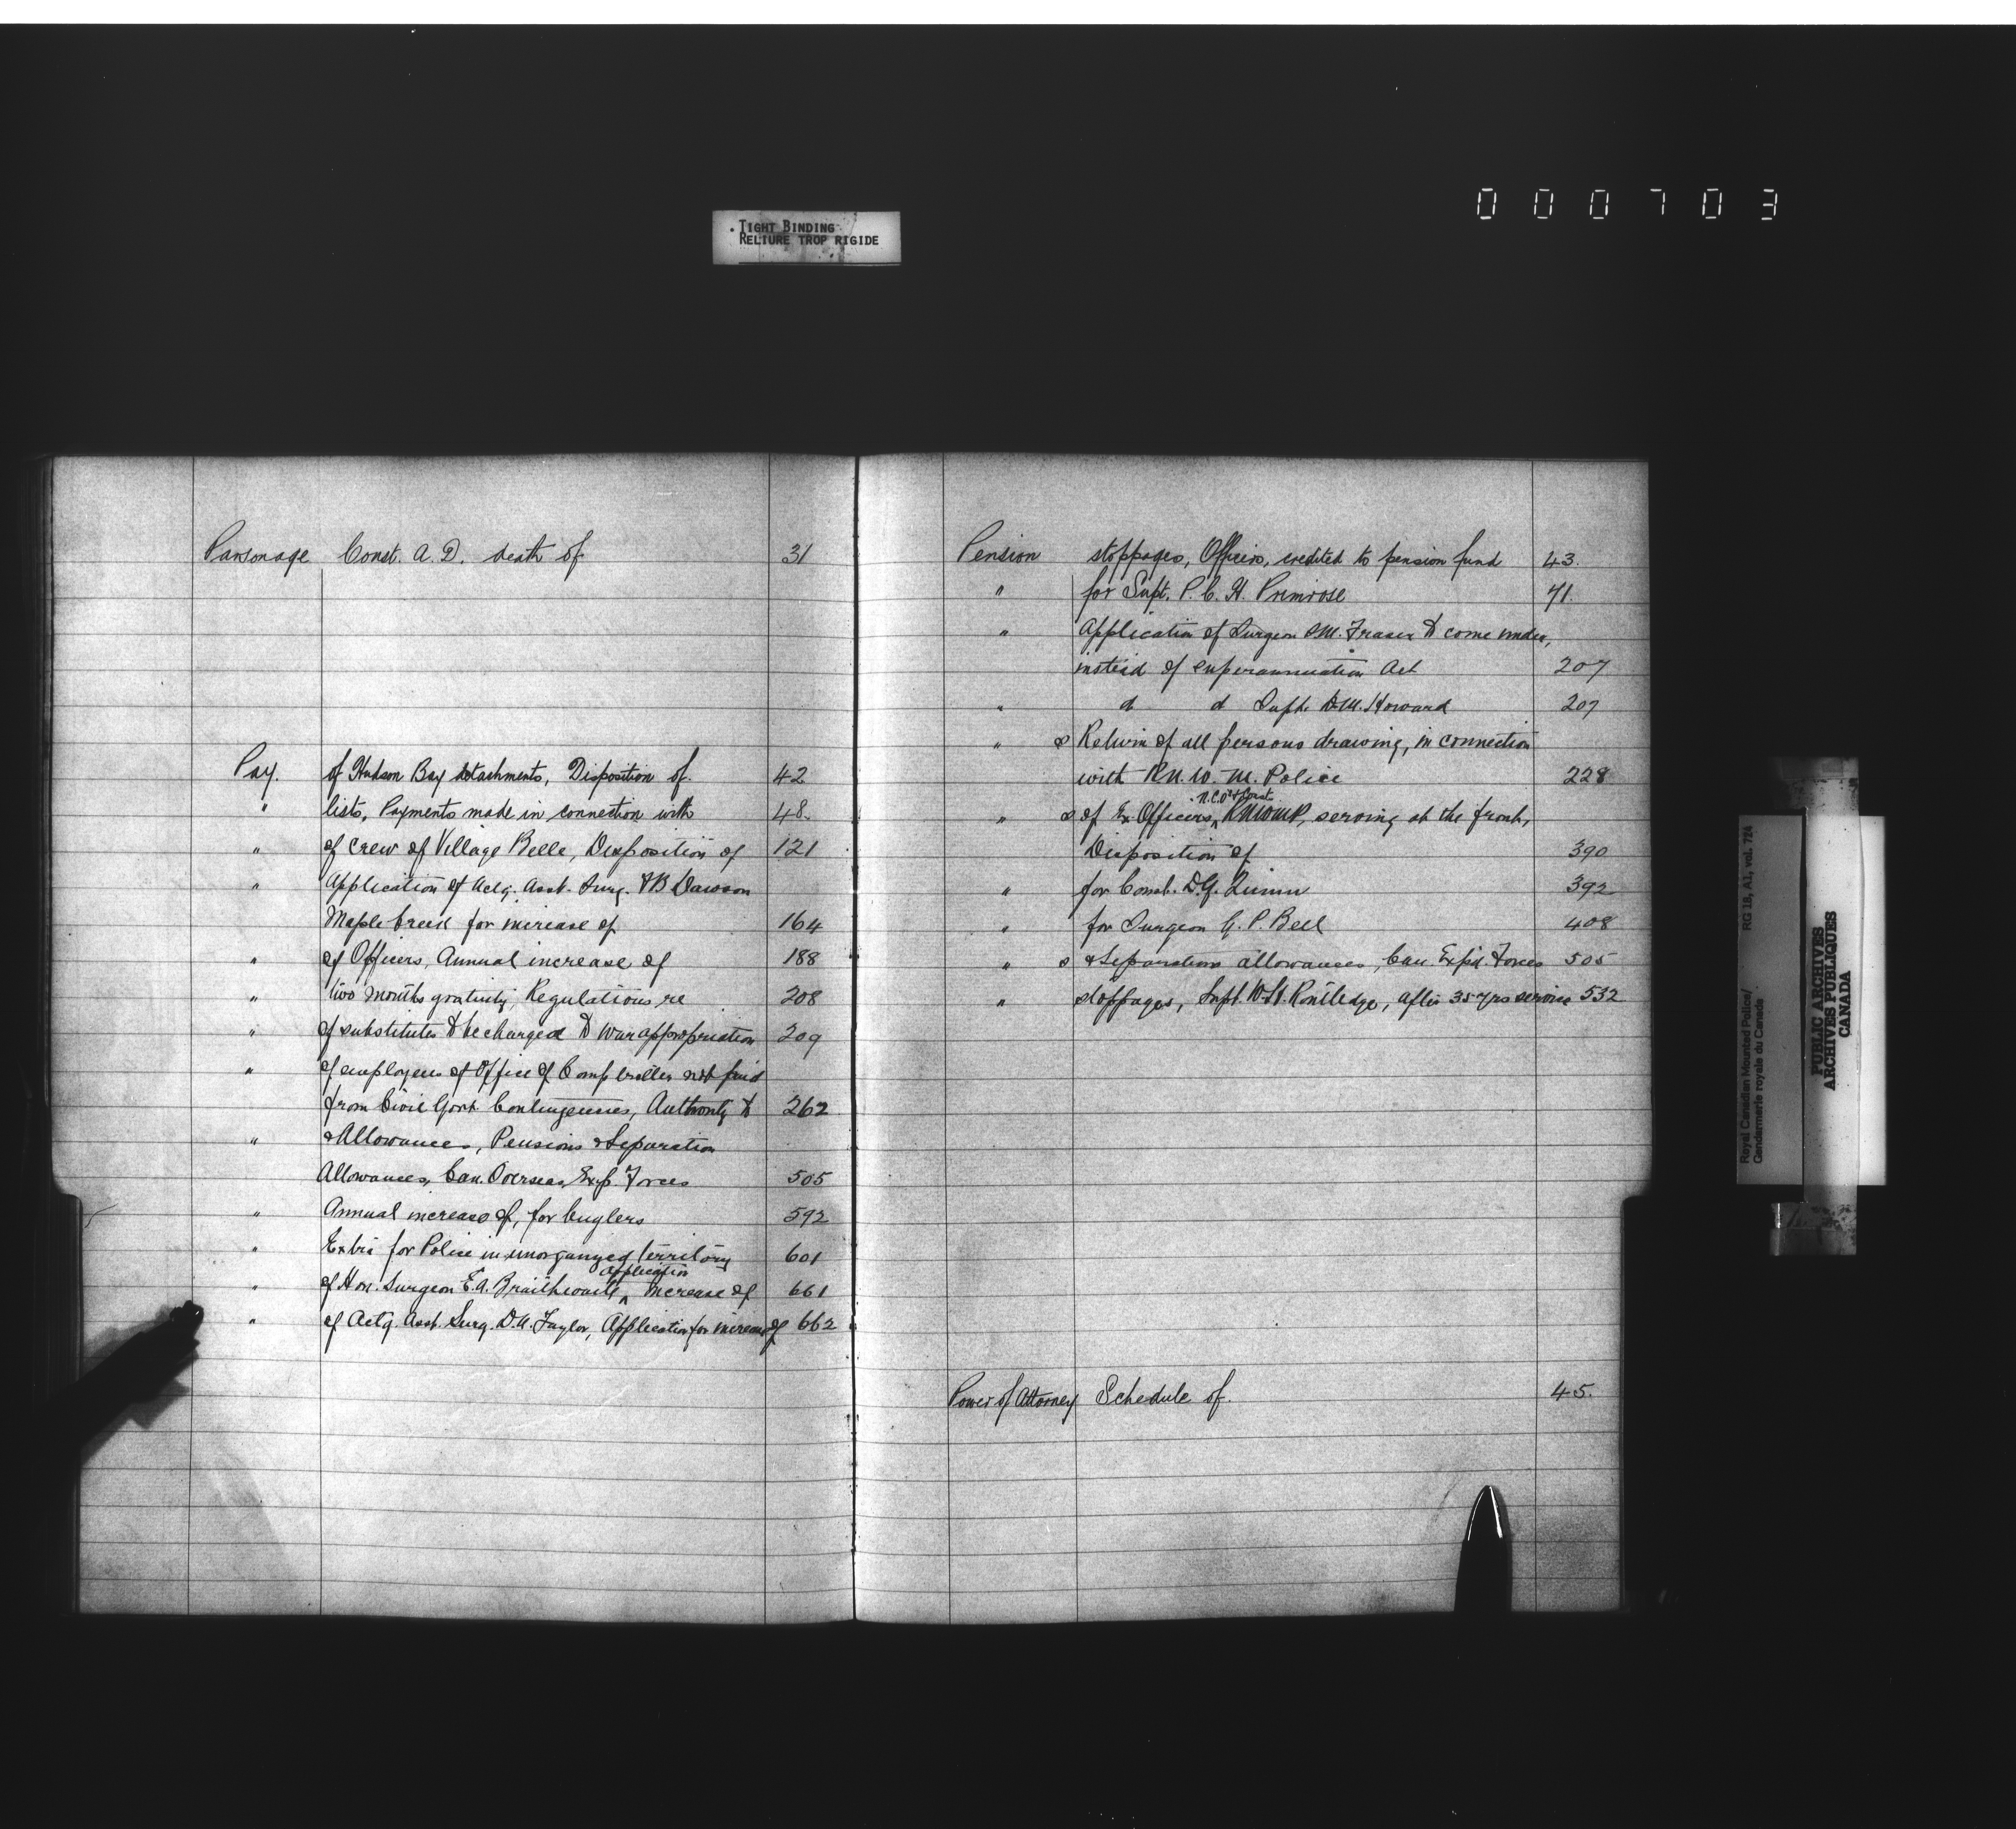 000703
TIGHT BINDING
RELIURE TROP RIGIDE
Parsonage Const. A. D. death of 31
Pay. of Hudson Bay detachments, Disposition of. 42
" lists, Payments made in connection with 48.
" of crew of Village Belle, Disposition of 121
" Application of Actg. Asst. Surg. Dawson
Maple Creek for increase of 164
" of Officers, Annual increase of 188
" two months gratuity, Regulations re 208
" of substitutes to be charged to War appropriation 209
" of employees of Office of Comptroller not paid
from Civil Govt. Contingencies, Authority to 262
" & Allowances, Pensions & Separation
Allowances, Can. Overseas Exp. Forces 505
" Annual increase of, for buglers 592
" Extra for Police in unorganized territory 601
" of Hon. Surgeon E. A. Braithwaite, Application increase of 661
" of Actg. Asst. Surg. D. A. Taylor, Application for increase of 662
Pension stoppages, Officers, credited to pension fund 43.
" for Supt. P. C. H. Primrose 71.
" Application of Surgeon S. M. Fraser to come under,
instead of superannuation Act 207
" d d Supt. D. M. Howard 207
" s Return of all persons drawing, in connection
with R. N. W. M. Police 228
" s of Ex Officers, N.C.O's & Consts RNWMP, serving at the front,
Disposition of 390
" for Const. D. G. Quinn 392
" for Surgeon G. P. Bell 408
" s & Separation allowances, Can. Exp'd. Forces 505
" stoppages, Supt. W. H. Routledge, after 35 yrs service 532
Power of Attorney Schedule of. 45.
Royal Canadian Mounted Police/
Gendarmerie royale du Canada
RG 18, A1, vol. 724
PUBLIC ARCHIVES
ARCHIVES PUBLIQUES
CANADA